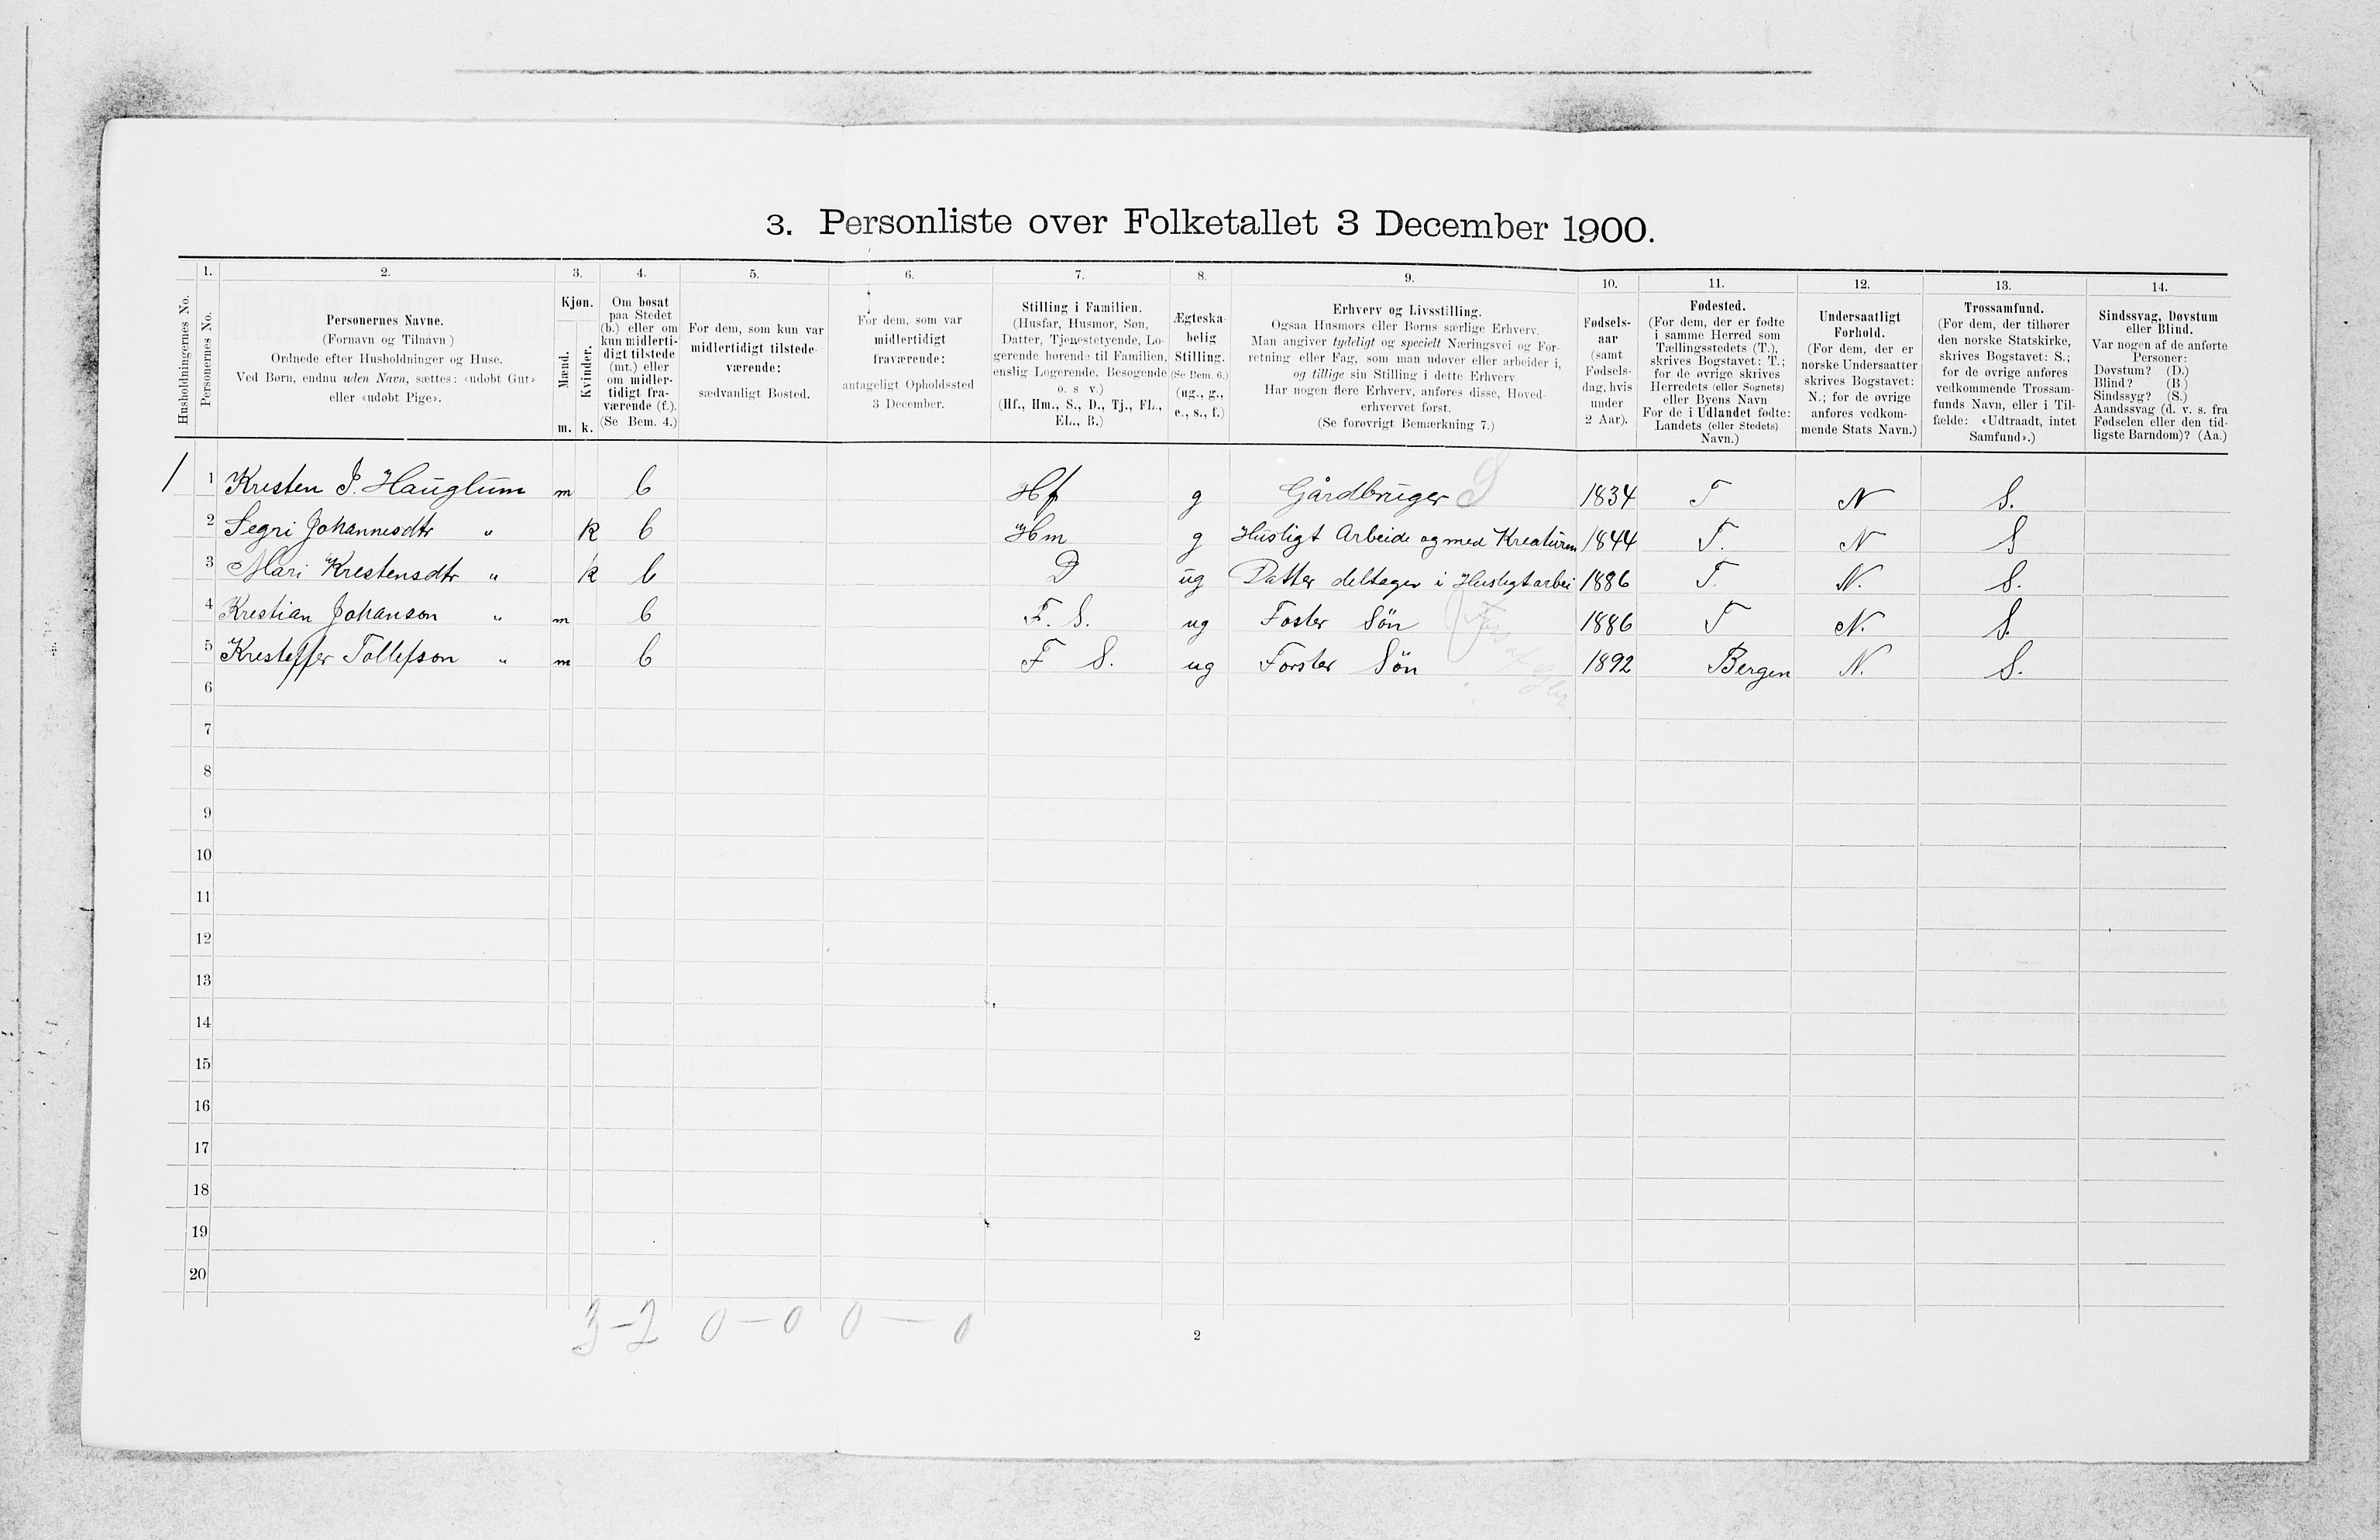 3. Personliste over Folketallet 3 December 1900.
1. 2. 3. 4. 5. 6. 7. 8. 9. 10. 11. 12. 13. 14.
Husholdningernes No.
Personernes No.
Personernes Navne.
(Fornavn og Tilnavn)
Ordnede efter Husholdninger og Huse.
Ved Børn, endnu uden Navn, sættes: «udøbt Gut»
eller «udøbt Pige».
Kjøn.
Mænd.
Kvinder.
m. k.
Om bosat
paa Stedet
(b.) eller om
kun midlerti-
digt tilstede
(mt.) eller
om midler-
tidigt fra-
værende (f.).
(Se Bem. 4.)
For dem, som kun var
midlertidigt tilstede-
værende:
sædvanligt Bosted.
For dem, som var
midlertidigt
fraværende:
antageligt Opholdssted
3 December.
Stilling i Familien.
(Husfar, Husmor, Søn,
Datter, Tjenestetyende, Lo-
gerende hørende til Familien,
enslig Logerende, Besøgende
o. s. v.)
(Hf., Hm., S., D., Tj., FL.,
EL., B.)
Ægteska-
belig
Stilling.
(Se Bem. 6.)
(ug., g.,
e., s., f.)
Erhverv og Livsstilling.
Ogsaa Husmors eller Børns særlige Erhverv.
Man angiver tydeligt og specielt Næringsvei og For-
retning eller Fag, som man udøver eller arbeider i,
og tillige sin Stilling i dette Erhverv
Har nogen flere Erhverv, anføres disse, Hoved-
erhvervet først.
(Se forøvrigt Bemærkning 7.)
Fødsels-
aar
(samt
Fødsels-
dag, hvis
under
2 Aar).
Fødested.
(For dem, der er fødte
i samme Herred som
Tællingsstedets (T.),
skrives Bogstavet: T.;
for de øvrige skrives
Herredets (eller Sognets)
eller Byens Navn
For de i Udlandet fødte:
Landets (eller Stedets)
Navn.)
Undersaatligt
Forhold.
(For dem, der er
norske Undersaatter
skrives Bogstavet:
N.; for de øvrige
anføres vedkom-
mende Stats Navn.)
Trossamfund.
(For dem, der tilhører
den norske Statskirke,
skrives Bogstavet: S.;
for de øvrige anføres
vedkommende Trossam-
funds Navn, eller i Til-
fælde: «Udtraadt, intet
Samfund».)
Sindssvag, Døvstum
eller Blind.
Var nogen af de anførte
Personer:
Døvstum? (D.)
Blind? (B.)
Sindssyg? (S.)
Aandssvag (d. v. s. fra
Fødselen eller den tid-
ligste Barndom)? (Aa.)
1 1 Kresten J. Hauglum m b Hf g Gårdbruger 1834 T N S.
2 Segri Johannesdtr " k b Hm g Husligt Arbeide og med Kreaturen 1844 T. N S
3 Mari Krestensdtr " k b D ug Datter deltager i Husligt arbei 1886 T. N. S.
4 Krestian Johanson " m b F. S. ug Foster Sön 1886 T N. S.
5 Kresteffer Tollefson " m b F S. ug Forster Sön 1892 Bergen N. S.
6
7
8
9
10
11
12
13
14
15
16
17
18
19
20
3-2 0-0 0-0
2